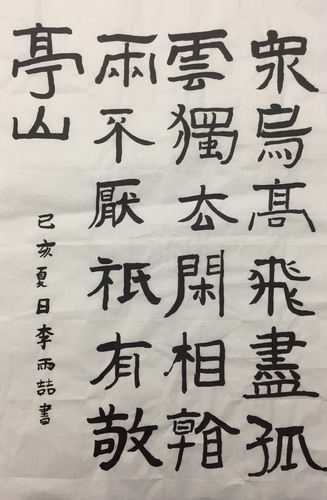 衆鳥髙飛盡孤
雲獨厺閑相看
兩不厭祇有敬
亭山
己亥夏日李雨喆書